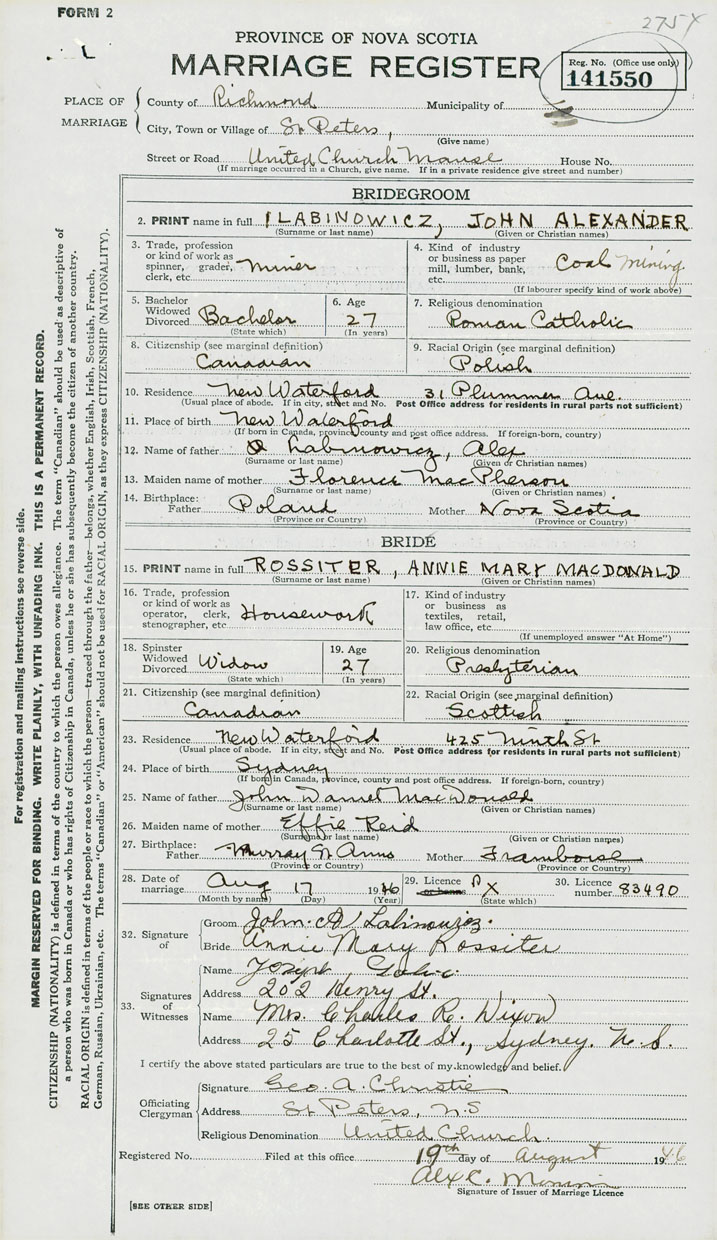 FORM 2
275X
PROVINCE OF NOVA SCOTIA
MARRIAGE REGISTER
Reg. No. (Office use only)
141550
PLACE OF MARRIAGE
County of Richmond Municipality of
City, Town or Village of St Peters,
(Give name)
Street or Road United Church Manse House No.
(If marriage occurred in a Church, give name. If in a private residence give street and number)
BRIDEGROOM
2. PRINT name in full LABINOWICZ, JOHN ALEXANDER
(Surname or last name) (Given or Christian names)
3. Trade, profession or kind of work as spinner, grader, clerk, etc. Miner
4. Kind of industry or business as paper mill, lumber, bank, etc. Coal Mining
(If labourer specify kind of work above)
5. Bachelor Widowed Divorced Bachelor
(State which)
6. Age 27
(In years)
7. Religious denomination
Roman Catholic
8. Citizenship (see marginal definition)
Canadian
9. Racial Origin (see marginal definition)
Polish
10. Residence New Waterford 31 Plummer Ave.
(Usual place of abode. If in city, street and No. Post Office address for residents in rural parts not sufficient)
11. Place of birth New Waterford
(If born in Canada, province, county and post office address. If foreign-born, country)
12. Name of father Labinowicz, Alex
(Surname or last name) (Given or Christian names)
13. Maiden name of mother Florence MacPherson
(Surname or last name) (Given or Christian names)
14. Birthplace: Father Poland Mother Nova Scotia
(Province or Country) (Province or Country)
BRIDE
15. PRINT name in full ROSSITER, ANNIE MARY MACDONALD
(Surname or last name) (Given or Christian names)
16. Trade, profession or kind of work as operator, clerk, stenographer, etc. Housework
17. Kind of industry or business as textiles, retail, law office, etc.
(If unemployed answer "At Home")
18. Spinster Widowed Divorced Widow
(State which)
19. Age 27
(In years)
20. Religious denomination
Presbyterian
21. Citizenship (see marginal definition)
Canadian
22. Racial Origin (see marginal definition)
Scottish
23. Residence New Waterford 425 Ninth St
(Usual place of abode. If in city, street and No. Post Office address for residents in rural parts not sufficient)
24. Place of birth Sydney
(If born in Canada, province, county and post office address. If foreign-born, country)
25. Name of father John Daniel MacDonald
(Surname or last name) (Given or Christian names)
26. Maiden name of mother Effie Reid
(Surname or last name) (Given or Christian names)
27. Birthplace: Father Murray St Anns Mother Framboise
(Province or Country) (Province or Country)
28. Date of marriage Aug 17 1946
(Month by name) (Day) (Year)
29. Licence or banns X
(State which)
30. Licence number 83490
32. Signature of
Groom John A Labinowicz
Bride Annie Mary Rossiter
33. Signatures of Witnesses
Name Joseph
Address 202 Henry St.
Name Mrs. Charles R. Dixon
Address 25 Charlotte St., Sydney. N.S.
I certify the above stated particulars are true to the best of my knowledge and belief.
Officiating Clergyman
Signature Geo. A. Christie
Address St Peters, N.S
Religious Denomination United Church.
Registered No. Filed at this office 19th day of August 1946
Alex C.
Signature of Issuer of Marriage Licence
[SEE OTHER SIDE]
For registration and mailing instructions see reverse side.
MARGIN RESERVED FOR BINDING. WRITE PLAINLY, WITH UNFADING INK. THIS IS A PERMANENT RECORD.
CITIZENSHIP (NATIONALITY) is defined in terms of the country to which the person owes allegiance. The term "Canadian" should be used as descriptive of
a person who was born in Canada or who has rights of Citizenship in Canada, unless he or she has subsequently become the citizen of another country.
RACIAL ORIGIN is defined in terms of the people or race to which the person—traced through the father—belongs, whether English, Irish, Scottish, French,
German, Russian, Ukrainian, etc. The terms "Canadian" or "American" should not be used for RACIAL ORIGIN, as they express CITIZENSHIP (NATIONALITY).